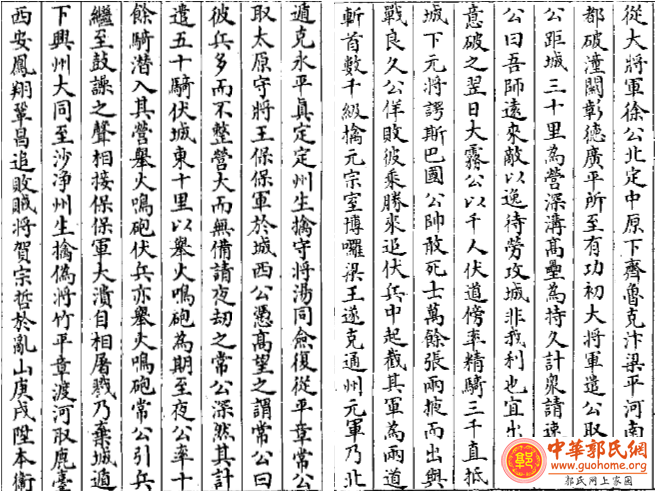 從大將軍徐公北定中原下齊魯克汴梁平河南
都破潼關彰德廣平所至有功初大將軍遣公取
公距城三十里為營深溝高壘為持久計衆請速
公曰吾師遠來敵以逸待勞攻城非我利也宜出
意破之翌日大霧公以千人伏道傍率精騎三千直抵
城下元將諤斯巴國公帥敢死士萬餘張兩掖而出與
戰良久公佯敗彼乘勝來追伏兵中起截其軍為兩道
斬首數千級擒元宗室博囉梁王遂克通州元軍乃北
遁克永平真定定州生擒守將湯同僉復從平章常公
取太原守將王保保軍於城西公憑高望之謂常公曰
彼兵多而不整營大而無備請夜劫之常公深然其計
遣五十騎伏城東十里以舉火鳴砲為期至夜公率十
餘騎潛入其營舉火鳴砲伏兵亦舉火鳴砲常公引兵
繼至鼓譟之聲相接保保軍大潰自相屠戮乃棄城遁
下興州大同至沙净州生擒偽將竹平章渡河取鹿臺
西安鳳翔鞏昌追敗賊將賀宗哲於亂山庚戌陞本衛
中華郭氏網
www.guohome.org
郭氏网上家园